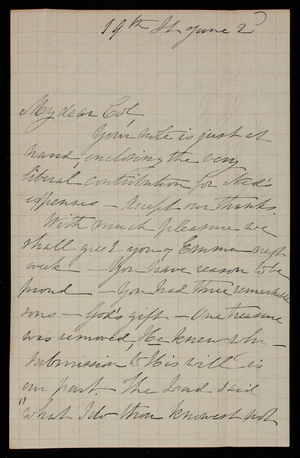 19th St June 2
My dear Col
Your note is just at
hand, enclosing the very
liberal contribution for Ned's
expenses - Accept our thanks.
With much pleasure we
shall greet you & Emma next
week - You have reason to be
proud - You had three remarkable
sons - God's gift - One treasure
was removed, He knew why -
Submission to His will is
our part. The Lord said
"What I do thou knowest not